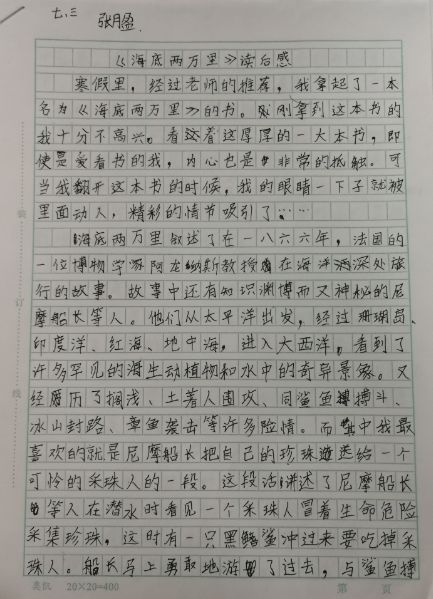 七、三 张月盈
《海底两万里》读后感
寒假里，经过老师的推荐，我拿起了一本
名为《海底两万里》的书。刚刚拿到这本书的
我十分不高兴。看这着这厚厚的一大本书，即
使是爱看书的我，内心也是非常的抵触。可
当我翻开这本书的时候，我的眼睛一下子就被
里面动人，精彩的情节吸引了……
海底两万里叙述了在一八六六年，法国的
一位博物学家阿龙纳斯教授在海洋深处旅
行的故事。故事中还有知识渊博而又神秘的尼
摩船长等人。他们从太平洋出发，经过珊瑚岛、
印度洋、红海、地中海，进入大西洋，看到了
许多罕见的海生动植物和水中的奇异景象。又
经历历了搁浅、土著人围攻、同鲨鱼搏斗、
冰山封路、章鱼袭击等许多险情。而其中我最
喜欢的就是尼摩船长把自己的珍珠送给一个
可怜的采珠人的一段。这段话讲述了尼摩船长
等人在潜水时看见一个采珠人冒着生命危险
采集珍珠，这时有一只黑鳍鲨冲过来要吃掉采
珠人。船长马上勇敢地游了过去，与鲨鱼搏
装
订
线
类限 20×20=400 第 页